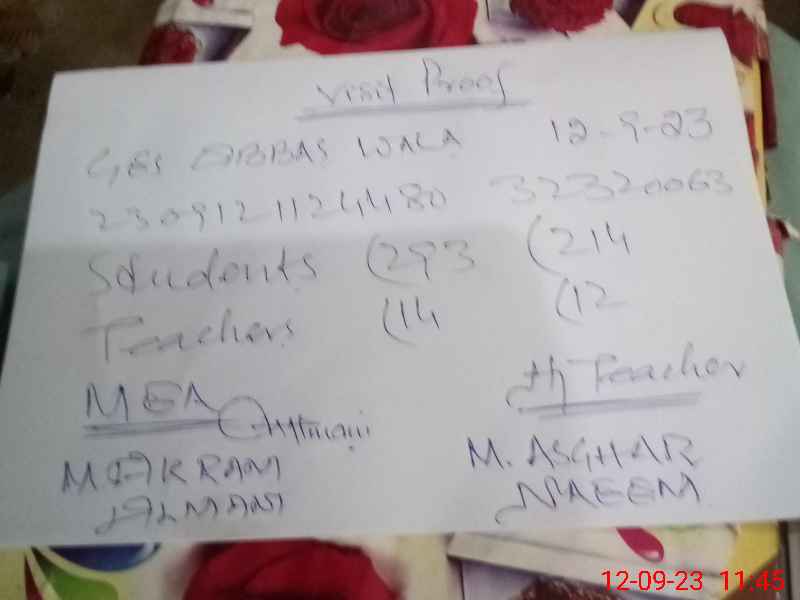 Visit Proof
GES ABBAS WALA 12-9-23
2309121124480 32320063
Students (293 (214
Teachers (14 (12
MEA H Teacher
M AKRAM M. ASGHAR
NAEEM
12-09-23 11:45